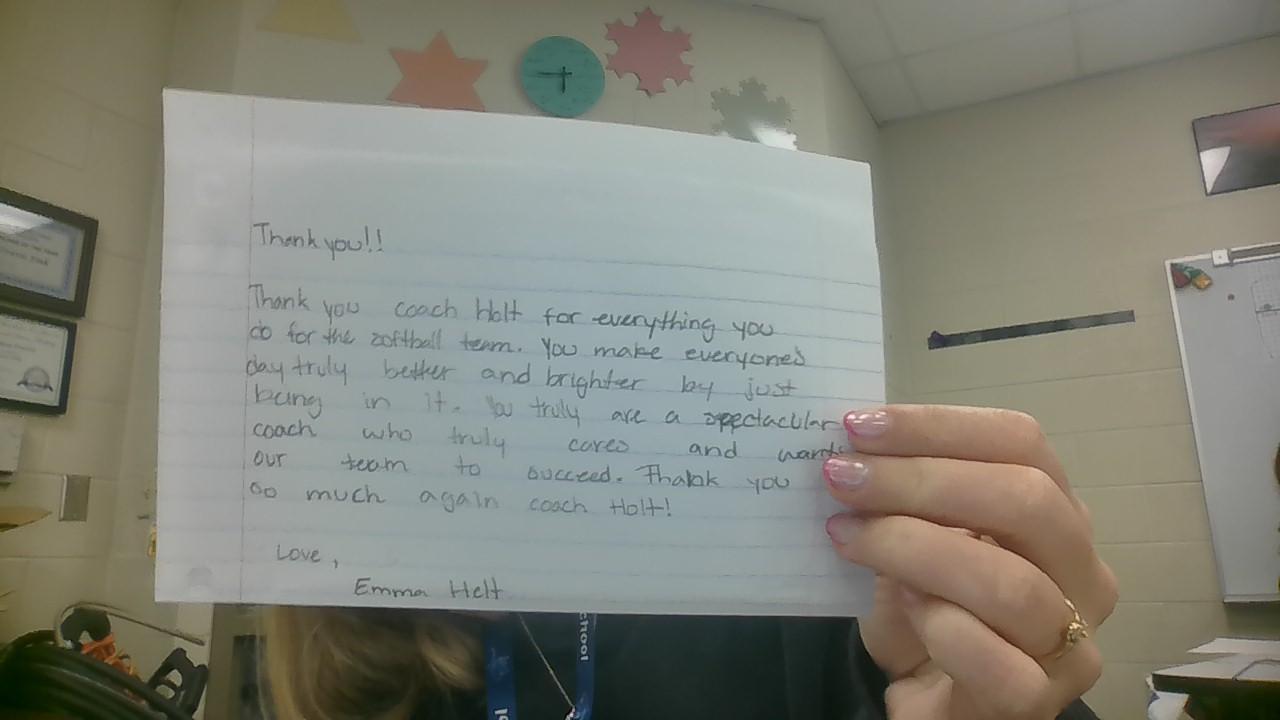 Thank you!!
Thank you coach Holt for everything you
do for the softball team. You make everyone's
day truly better and brighter by just
being in it. You truly are a spectacular
coach who truly cares and wants
our team to succeed. Thank you
so much again coach Holt!
Love,
Emma Helt
chool